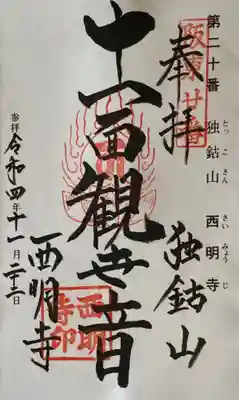 第二十番 独鈷山 西明寺
とっこさん さいみょうじ
坂東廿番
奉拝
独鈷山
十一面観世音
西明寺印
西明寺
参拝 令和四年十一月二十二日